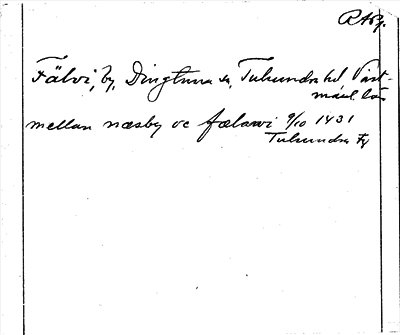 RApg.
Fälvi, by, Dingtuna sn, Tuhundra hd Väst-
manl. län
mellan næsby oc fælawi 9/10 1431
Tuhundra Fj